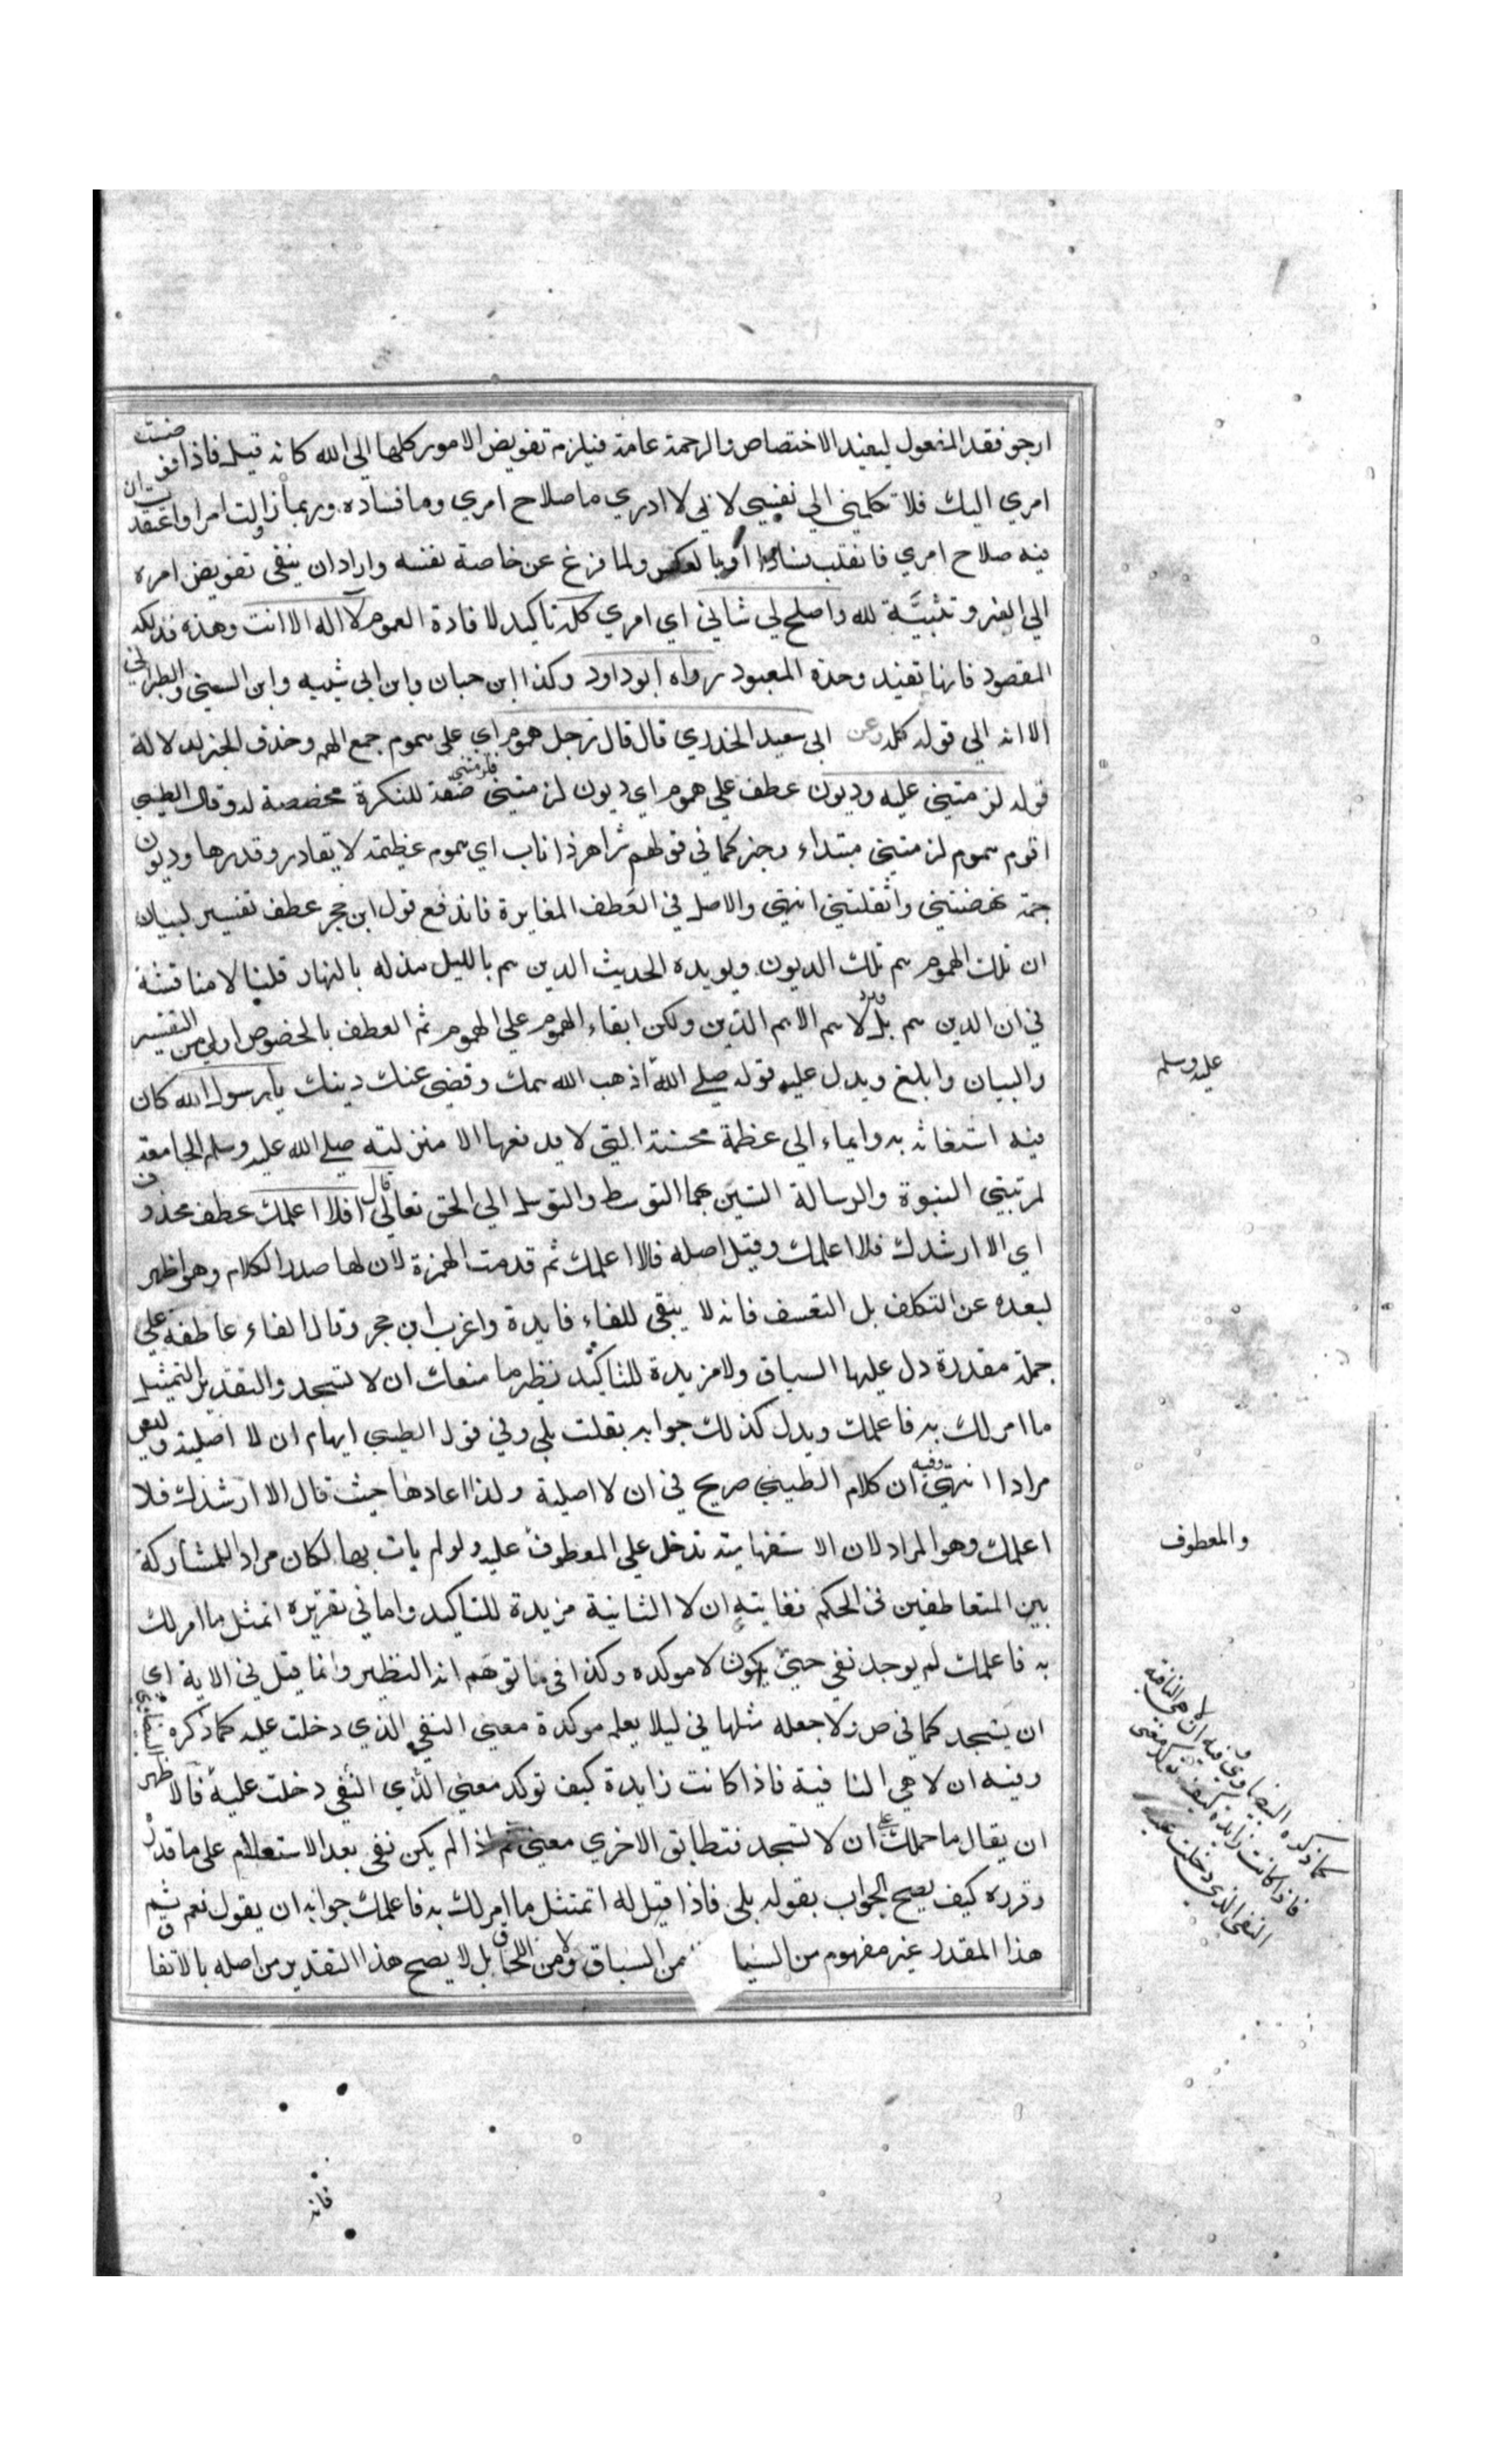 ارجو فقد المفعول ليفيد الاختصاص والرحمة عامة فيلزم تفويض الامور كلها الى الله كانه قيل فاذا فوضت
امري اليك فلا تكلني الي نفسي لاني لا ادري ما صلاح امري وما فساده وربما زاولت امرا واعتقدت ان
فيه صلاح امري فانقلب فسادا او بالعكس ولما فرغ عن خاصة نفسه واراد ان ينفي تفويض امره
الي الغير وتثبيته لله واصلح لي شاني اي امري كله تاكيد لافادة العموم لا اله الا انت وهذه فذلكة
المقصود فانها تفيد وحدة المعبود رواه ابو داود وكذا ابن حبان وابن ابي شيبه وابن السني والطبراني
الا انه الي قوله كله وعن ابي سعيد الخدري قال قال رجل هموم اي علي هموم جمع الهم وحذف الخبر لدلالة
قوله لزمتني عليه وديون عطف علي هموم اي ديون لزمتني فلزمتني صفة للنكرة مخصصة له وقال الطيبي
اقوم هموم لزمتني مبتداء وخبر كما في قولهم شر اهر ذا ناب اي هموم عظيمة لا يقادر قدرها وديون
جمة نهضتني واثقلتني انتهى والاصل في العطف المغايرة فاندفع قول ابن حجر عطف تفسير لبيان
ان تلك الهموم هم تلك الديون ويويده الحديث الدين هم بالليل مذله بالنهار قلنا لا مناقشة
في ان الدين هم بل ورد لا هم الا هم الدين ولكن ابقاء الهموم علي الهموم ثم العطف بالخصوص اولي من التفسير
والبيان وابلغ ويدل عليه قوله صلى الله اذهب الله همك وقضي عنك دينك يا رسول الله كان
عليه وسلم
فيه استغاثه به وايماء الي عظمة محنته التي لا يدفعها الا منزلته صلى الله عليه وسلم الجامعة
لمرتبتي النبوة والرسالة التين بهما التوسط والتوسل الي الحق تعالي قال افلا اعلمك عطف محذوف
اي الا ارشدك فلا اعلمك وقيل اصله فالا اعلمك ثم قدمت الهمزة لان لها صدر الكلام وهو اظهر
لبعده عن التكلف بل التعسف فانه لا يبقي للفاء فايدة واغرب ابن حجر وقال الفاء عاطفة علي
جملة مقدرة دل عليها السياق ولا مزيدة للتاكيد نظير ما منعك ان لا تسجد والتقدير اتمتثل
ما امر لك به فاعلمك ويدل كذلك جوابه بقلت بلي وفي قول الطيبي ايهام ان لا اصلية وليس
مرادا انتهي وفيه ان كلام الطيبي صريح في ان لا اصلية ولذا اعادها حيث قال الا ارشدك فلا
اعلمك وهو المراد لان الاستفهامية تدخل علي المعطوف عليه ولو لم يات بها لكان مرادا للمشاركة
والمعطوف
بين المتعاطفين في الحكم فغايته ان لا الثانية مزيدة للتاكيد واما في تقريره اتمثل ما امر لك
به فاعلمك لم يوجد نفي حتى يكون لا موكده وكذا في ما توهم انه النظير وانما قيل في الاية اي
ان يسجد كما في ص ولا جعله مثلها في ليلا يعلم موكدة معني النفي الذي دخلت عليه كما ذكره البيضاوي
وفيه ان لا هي النافية فاذا كانت زايدة كيف توكد معني الذي النفي دخلت عليه فالاظهر
كما ذكره البيضاوي وفيه ان لا هي النافية
فاذا كانت زايدة كيف توكد معني
النفي الذي دخلت عليه
ان يقال ما حملك علي ان لا تسجد فتطابق الاخري معني ثم اذا لم يكن نفي بعد الاستعلام على ما قدره
وقرره كيف يصح الجواب بقوله بلي فاذا قيل له اتمتثل ما امر لك به فاعلمك جوابه ان يقول نعم ثم
هذا المقدر غير مفهوم من السياق من السباق ولا من اللحاق بل لا يصح هذا التقدير من اصله بالاتفاق
فانه